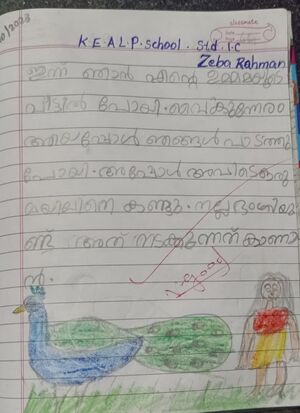 10/2023
classmate
Date
Page
K.E.A.L.P. School. Std. I.C
Zeba Rahman
ഇന്ന് ഞാൻ എന്റെ ഉമ്മമയുടെ
വീട്ടിൽ പോയി. വൈകുന്നേരം
ആയപ്പോൾ ഞങ്ങൾ പാടത്തു
പോയി. അപ്പോൾ അവിടെ ഒരു
മയിലിനെ കണ്ടു. നല്ല ഭംഗിയു
ണ്ട് അത് നടക്കുന്നത് കാണാ
ൻ.
V.good